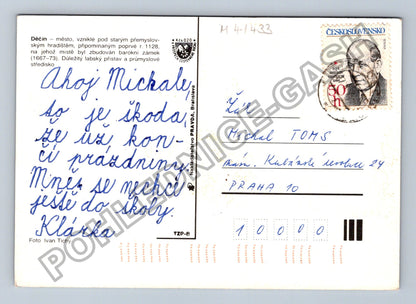 Děčín – město, vzniklé pod starým přemyslov-
ským hradištěm, připomínaným poprvé r. 1128,
na jehož místě byl zbudován barokní zámek
(1667–73). Důležitý labský přístav a průmyslové
středisko
Ahoj Michale,
to je škoda,
že už kon-
čí prázdniny.
Mně se nechce
ještě do školy.
Klárka
Foto Ivan Tichý
TZP-II
Vydavatelstvo PRAVDA, Bratislava
M 4/433
ČESKOSLOVENSKO
50
h
Žák
Michal TOMS
nám. Kubánské revoluce 24
PRAHA 10
10000
POHLEDNICE-GASH